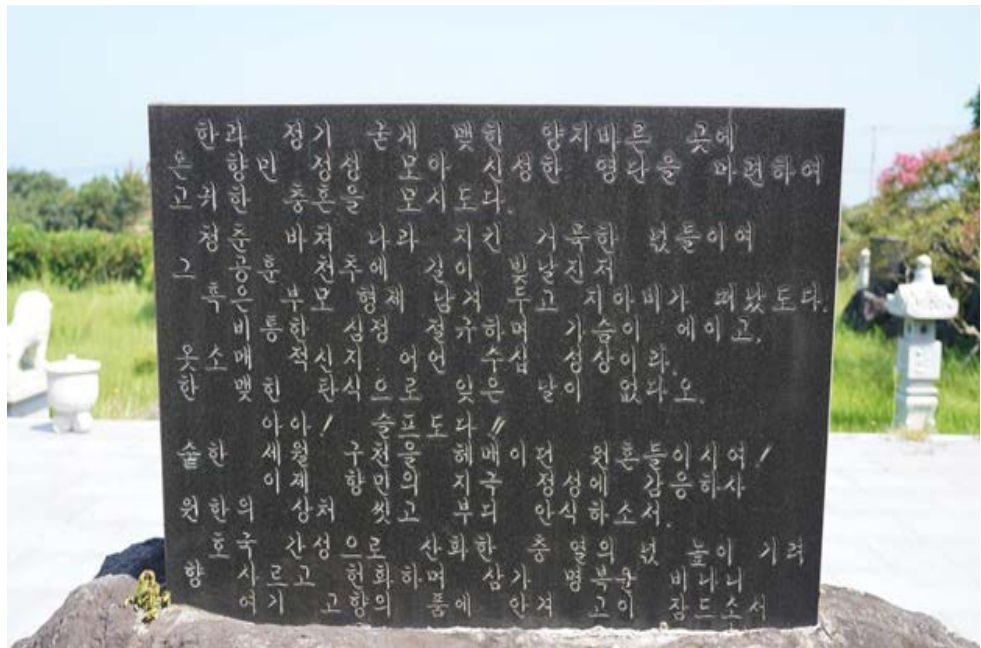 한라 정기 굳게 맺힌 양지바른 곳에
온 향민 정성 모아 신성한 영단을 마련하여
고귀한 충혼을 모시도다.
청춘 바쳐 나라 지킨 거룩한 넋들이여
그 공훈 천추에 길이 빛날진저
혹은 부모 형제 남겨 두고 지아비가 떠났도다.
비통한 심정 절규하며 가슴이 에이고,
옷소매 적신지 어언 수십 성상이라.
한 맺힌 탄식으로 잊은 날이 없다오.
아아! 슬프도다!!
숱한 세월 구천을 헤매이던 원혼들이시여!
이제 향민의 지극 정성에 감응하사
원한의 상처 씻고 부디 안식하소서.
호국 간성으로 산화한 충 열의 넋 높이 기려
향 사르고 헌화하며 삼가 명복을 비나니
여기 고향의 품에 안겨 고이 잠드소서